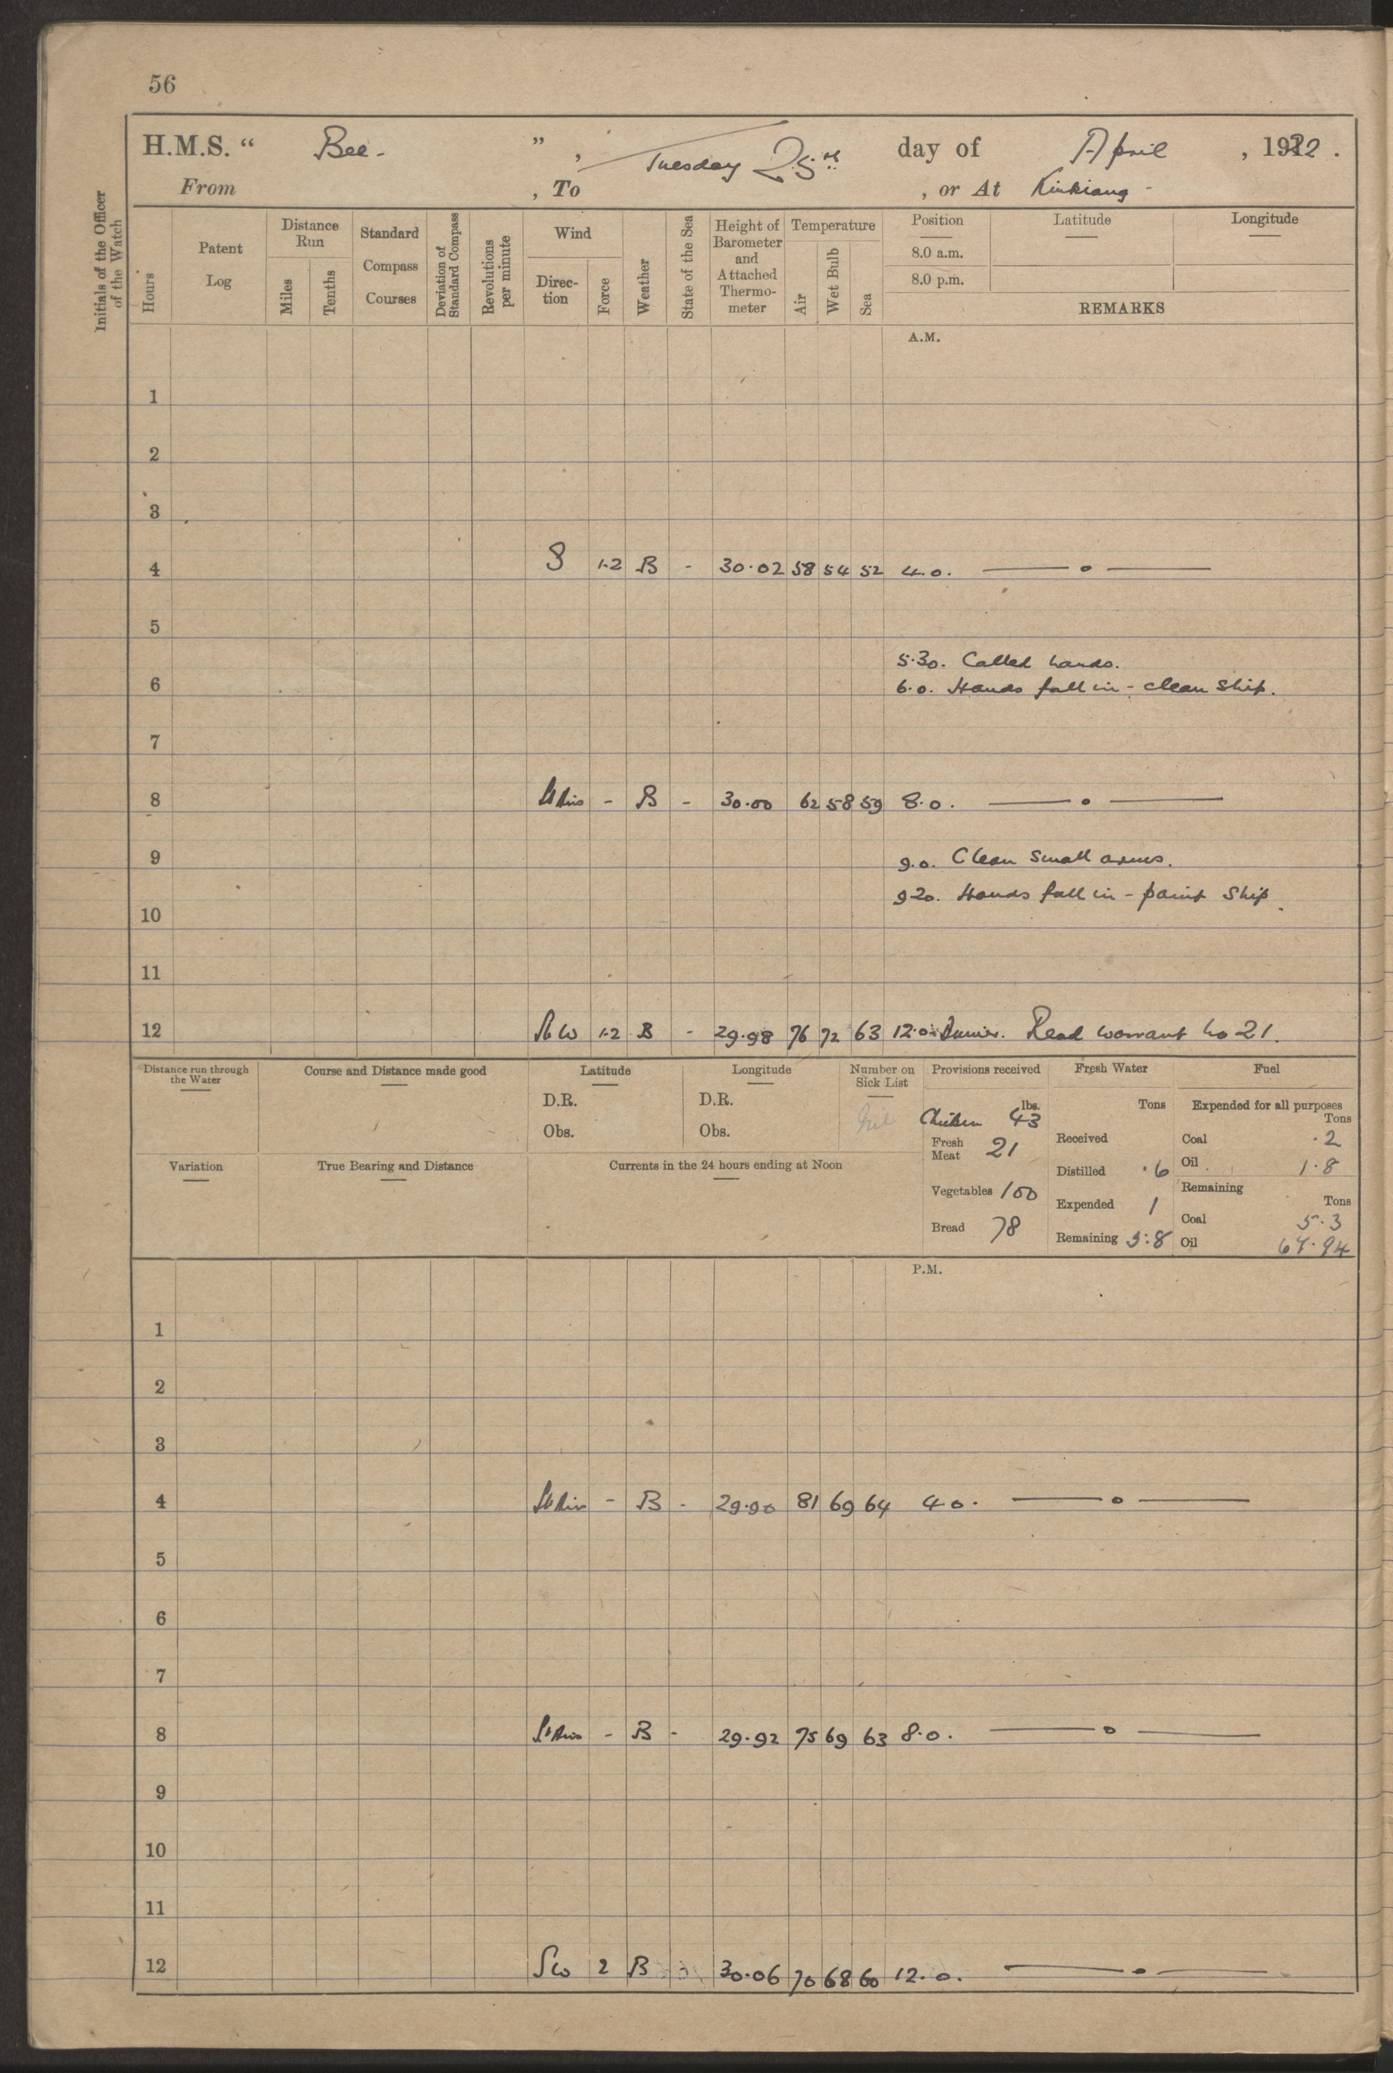 56
H.M.S. " Bee - ", Tuesday 25th day of April, 1922.
From , To , or At Kiukiang -
Initials of the Officer of the Watch
Hours
Patent Log
Distance Run
Miles
Tenths
Standard Compass Courses
Deviation of Standard Compass
Revolutions per minute
Wind
Direction
Force
Weather
State of the Sea
Height of Barometer and Attached Thermometer
Temperature
Air
Wet Bulb
Sea
Position
Latitude
Longitude
8.0 a.m.
8.0 p.m.
REMARKS
A.M.
1
2
3
4 S 1.2 B - 30.02 58 54 52 4.0. — o —
5
5.30. Called hands.
6 6.0. Hands fall in - clean ship.
7
8 - B - 30.00 62 58 59 8.0. — o —
9 9.0. Clean small arms.
9.20. Hands fall in - paint ship.
10
11
12 1.2 B - 29.98 76 72 63 12.0. Dinner. Read warrant No 21.
Distance run through the Water
Course and Distance made good
Latitude
D.R.
Obs.
Longitude
D.R.
Obs.
Number on Sick List
Nil
Provisions received
lbs.
Chicken 43
Fresh Meat 21
Vegetables 100
Bread 78
Fresh Water
Tons
Received
Distilled .6
Expended 1
Remaining 5.8
Fuel
Expended for all purposes
Tons
Coal .2
Oil 1.8
Remaining
Tons
Coal 5.3
Oil
Variation
True Bearing and Distance
Currents in the 24 hours ending at Noon
P.M.
1
2
3
4 - B - 29.90 81 69 64 4.0. — o —
5
6
7
8 - B - 29.92 75 69 63 8.0. — o —
9
10
11
12 SW 2 B 30.06 70 68 60 12.0. — o —